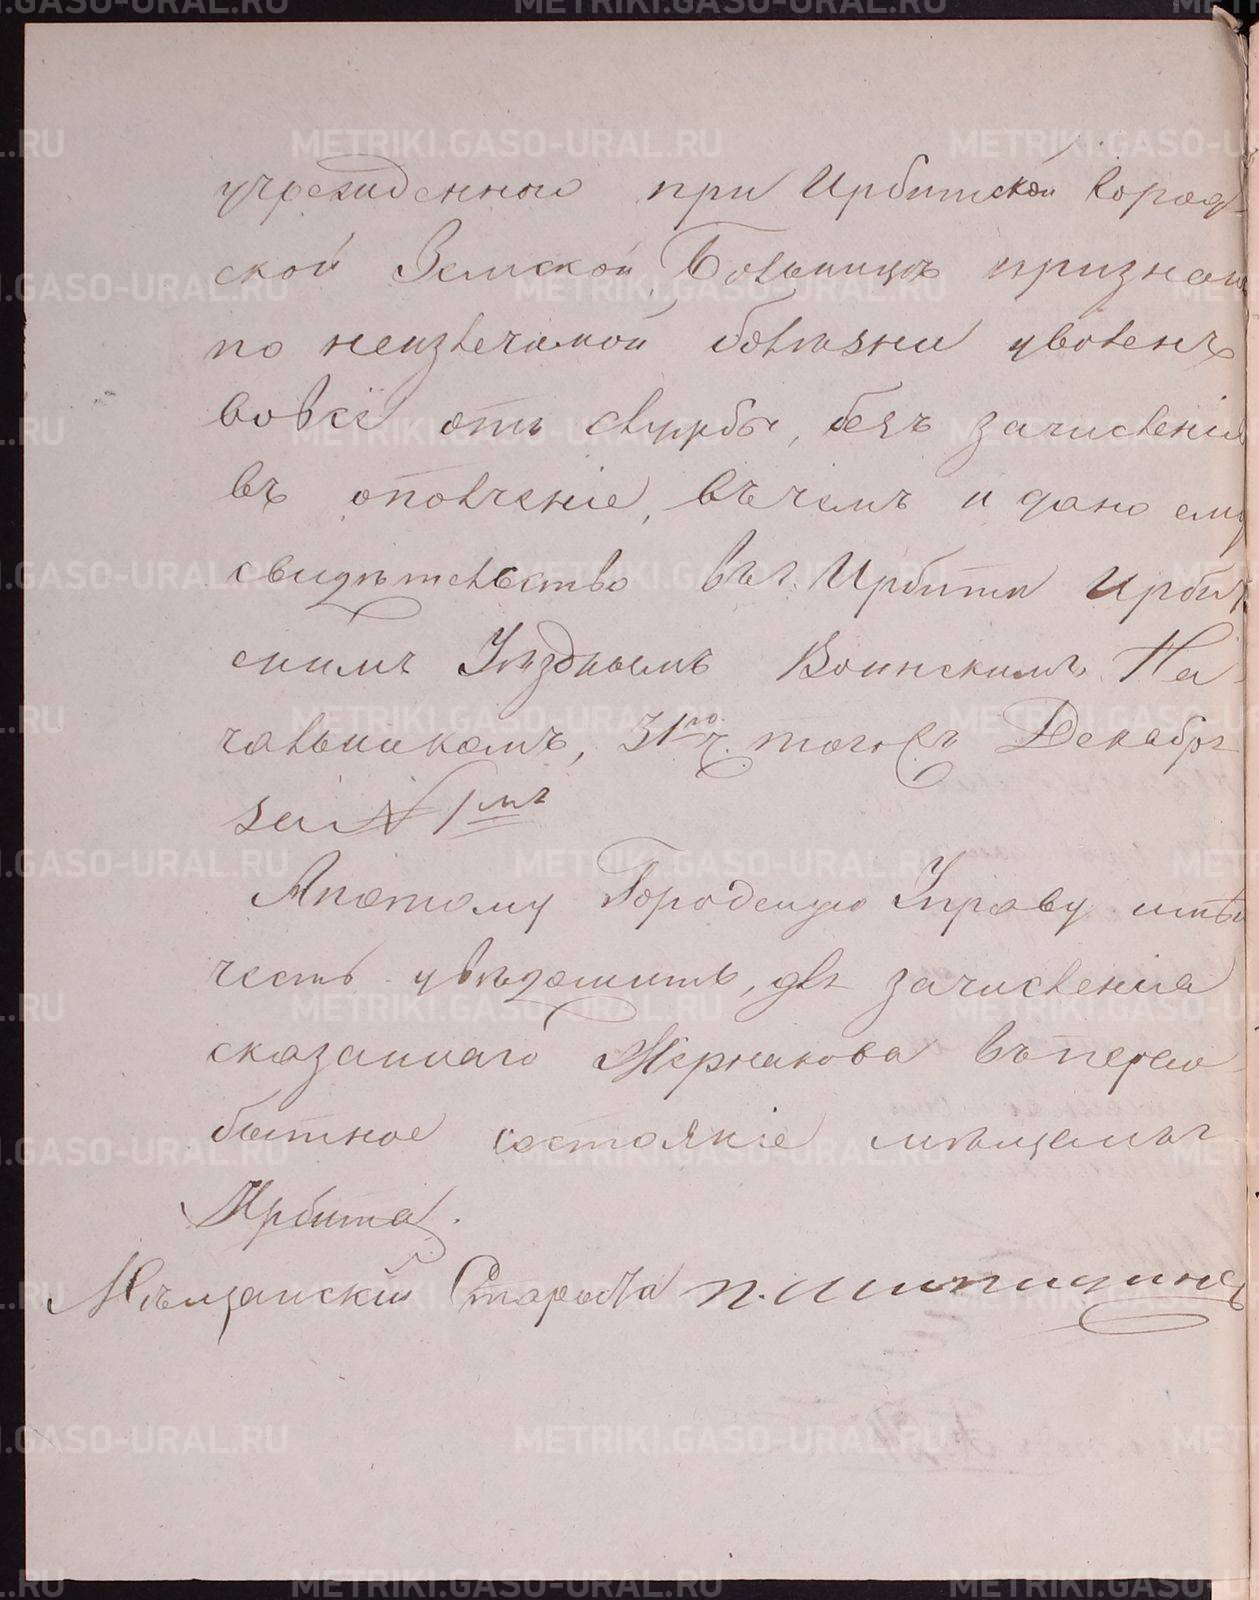 учрежденно при Ирбитской Город-
ской Земской Больницѣ признан
по неизлечимой болѣзни уволенъ
вовсе отъ службы, безъ зачисленія
въ ополченіе, въ чемъ и дано ему
свидѣтельство въ г. Ирбити Ирбит
скимъ Уѣзднымъ Воинскимъ На-
чальникомъ, 31го ч. того жъ Декабря
за № 1мъ
А потому Городскую Управу имѣю
честь увѣдомить, для зачисленія
сказаннаго Жернакова въ перво-
бытное состояніе мѣщанъ г
Ирбита.
Мѣщанскій Староста П. Шипицинъ